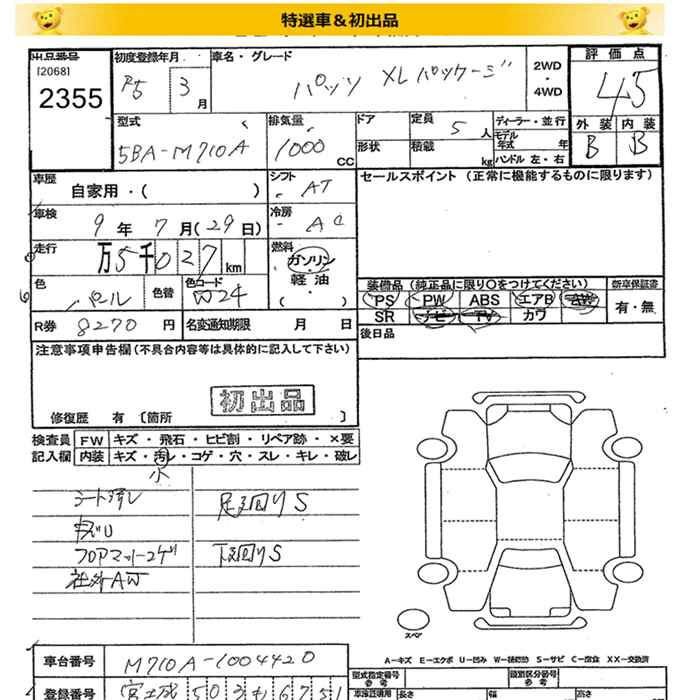 特選車＆初出品
出品番号
[2068]
2355
初度登録年月
R5 3月
車名・グレード
パッソ XLパッケージ
2WD
・
4WD
評価点
4.5
型式
5BA-M710A
排気量
1000 CC
ドア
形状
定員 5人
積載 kg
ディーラー・並行
モデル年式 年
ハンドル 左・右
外装 内装
B B
車歴
自家用・( )
シフト
AT
セールスポイント（正常に機能するものに限ります）
車検
9年7月(29日)
冷房
AC
走行
万5千027km
燃料
ガソリン
・
軽油
・
( )
色
パール
色替
色コード
W24
装備品（純正品に限り○をつけてください）
新車保証書
PS PW ABS エアB AW
有・無
SR ナビ TV カワ
R券 8270円
名変通知期限 月 日
後日品
注意事項申告欄(不具合内容等は具体的に記入して下さい)
初出品
修復歴 有 〔箇所 〕
検査員
記入欄
FW キズ・飛石・ヒビ割・リペア跡・×要
内装 キズ・汚レ・コゲ・穴・スレ・キレ・破レ
小
シート汚レ
足廻りS
キズU
フロアマットコゲ
下廻りS
社外AW
スペア
A−キズ E−エクボ U−凹み W−補修跡 S−サビ C−腐食 XX−交換済
車台番号 M710A-1004420
登録番号
型式指定番号
参考
類別区分番号
参考
車庫証明用
長さ 幅 高さ